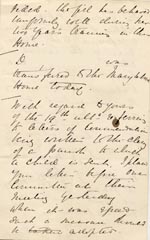 noted. The girl has behaved
uniformly well during her
two years training in this
Home.
D was
transferred to the Marylebone
Home today.
With regard to yours
of the 19th ult. referring
to letters of Commendation
being written to the Clergy
of a Parish to which
a Child is sent, I placed
your letter before our
Committee at their
Meeting yesterday
when it was agreed
such a measure should
be adopted.